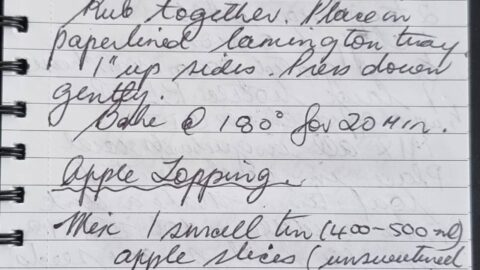 Rub together. Place in
paperlined lamington tray.
1" up sides. Press down
gently.
Bake @ 180° for 20 min.
Apple Topping.
Mix 1 small tin (400-500 ml)
apple slices (unsweetened